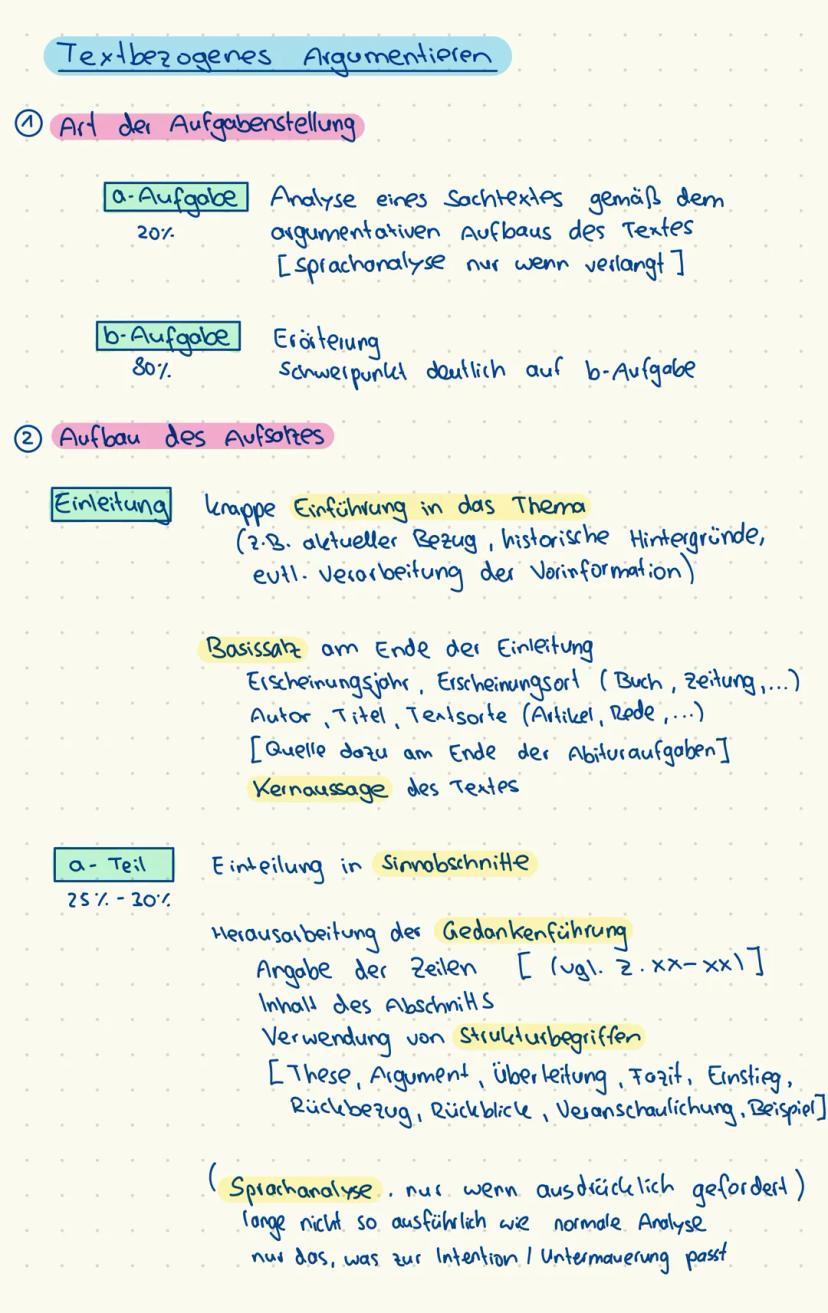 Textbezogenes Argumentieren
① Art der Aufgabenstellung
a-Aufgabe Analyse eines Sachtextes gemäß dem
20% argumentativen Aufbaus des Textes
[Sprachanalyse nur wenn verlangt]
b-Aufgabe Erörterung
80% Schwerpunkt deutlich auf b-Aufgabe
② Aufbau des Aufsatzes
Einleitung knappe Einführung in das Thema
(z.B. aktueller Bezug, historische Hintergründe,
evtl. Verarbeitung der Vorinformation)
Basissatz am Ende der Einleitung
Erscheinungsjahr, Erscheinungsort (Buch, Zeitung,...)
Autor, Titel, Textsorte (Artikel, Rede,...)
[Quelle dazu am Ende der Abituraufgaben]
Kernaussage des Textes
a-Teil Einteilung in Sinnabschnitte
25% - 30%
Herausarbeitung der Gedankenführung
Angabe der Zeilen [(vgl. Z. xx-xx)]
Inhalt des Abschnitts
Verwendung von Strukturbegriffen
[These, Argument, Überleitung, Fazit, Einstieg,
Rückbezug, Rückblick, Veranschaulichung, Beispiel]
(Sprachanalyse. nur wenn ausdrücklich gefordert)
lange nicht so ausführlich wie normale Analyse
nur das, was zur Intention / Untermauerung passt